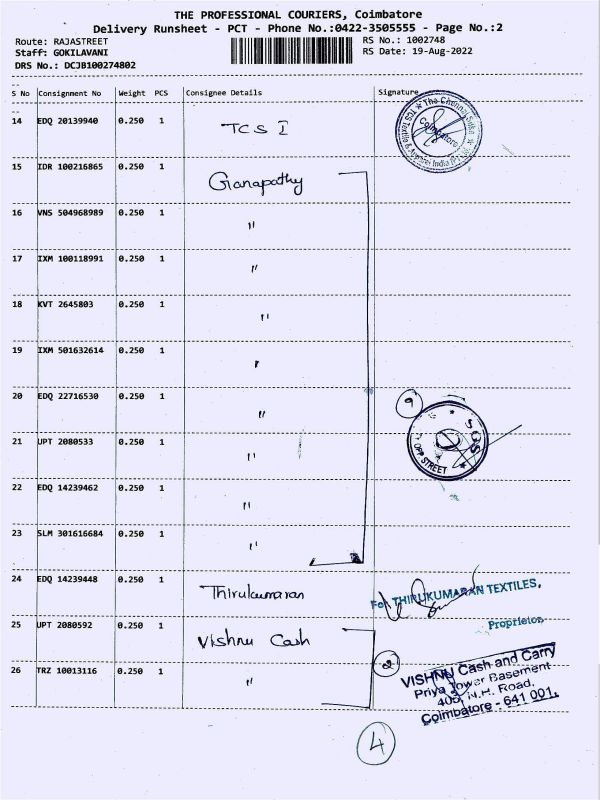 THE PROFESSIONAL COURIERS, Coimbatore
Delivery Runsheet - PCT - Phone No.:0422-3505555 - Page No.:2
Route: RAJASTREET
Staff: GOKILAVANI
DRS No.: DCJB100274802
RS No.: 1002748
RS Date: 19-Aug-2022
S No Consignment No Weight PCS Consignee Details Signature
14 EDQ 20139940 0.250 1 TCS I
The Chennai Silks
TCS Textile & Apparel India (P) Ltd
Coimbatore
15 IDR 100216865 0.250 1 Ganapathy
16 VNS 504968989 0.250 1 "
17 IXM 100118991 0.250 1 "
18 KVT 2645803 0.250 1 "
19 IXM 501632614 0.250 1 "
20 EDQ 22716530 0.250 1 "
9
SGS
OPP STREET
21 UPT 2080533 0.250 1 "
22 EDQ 14239462 0.250 1 "
23 SLM 301616684 0.250 1 "
24 EDQ 14239448 0.250 1 Thirukumaran
For THIRUKUMARAN TEXTILES.
Proprietor
25 UPT 2080592 0.250 1 Vishnu Cash
26 TRZ 10013116 0.250 1 "
2
VISHNU Cash and Carry
Priya Tower Basement
405, N.H. Road,
Coimbatore - 641 001.
4